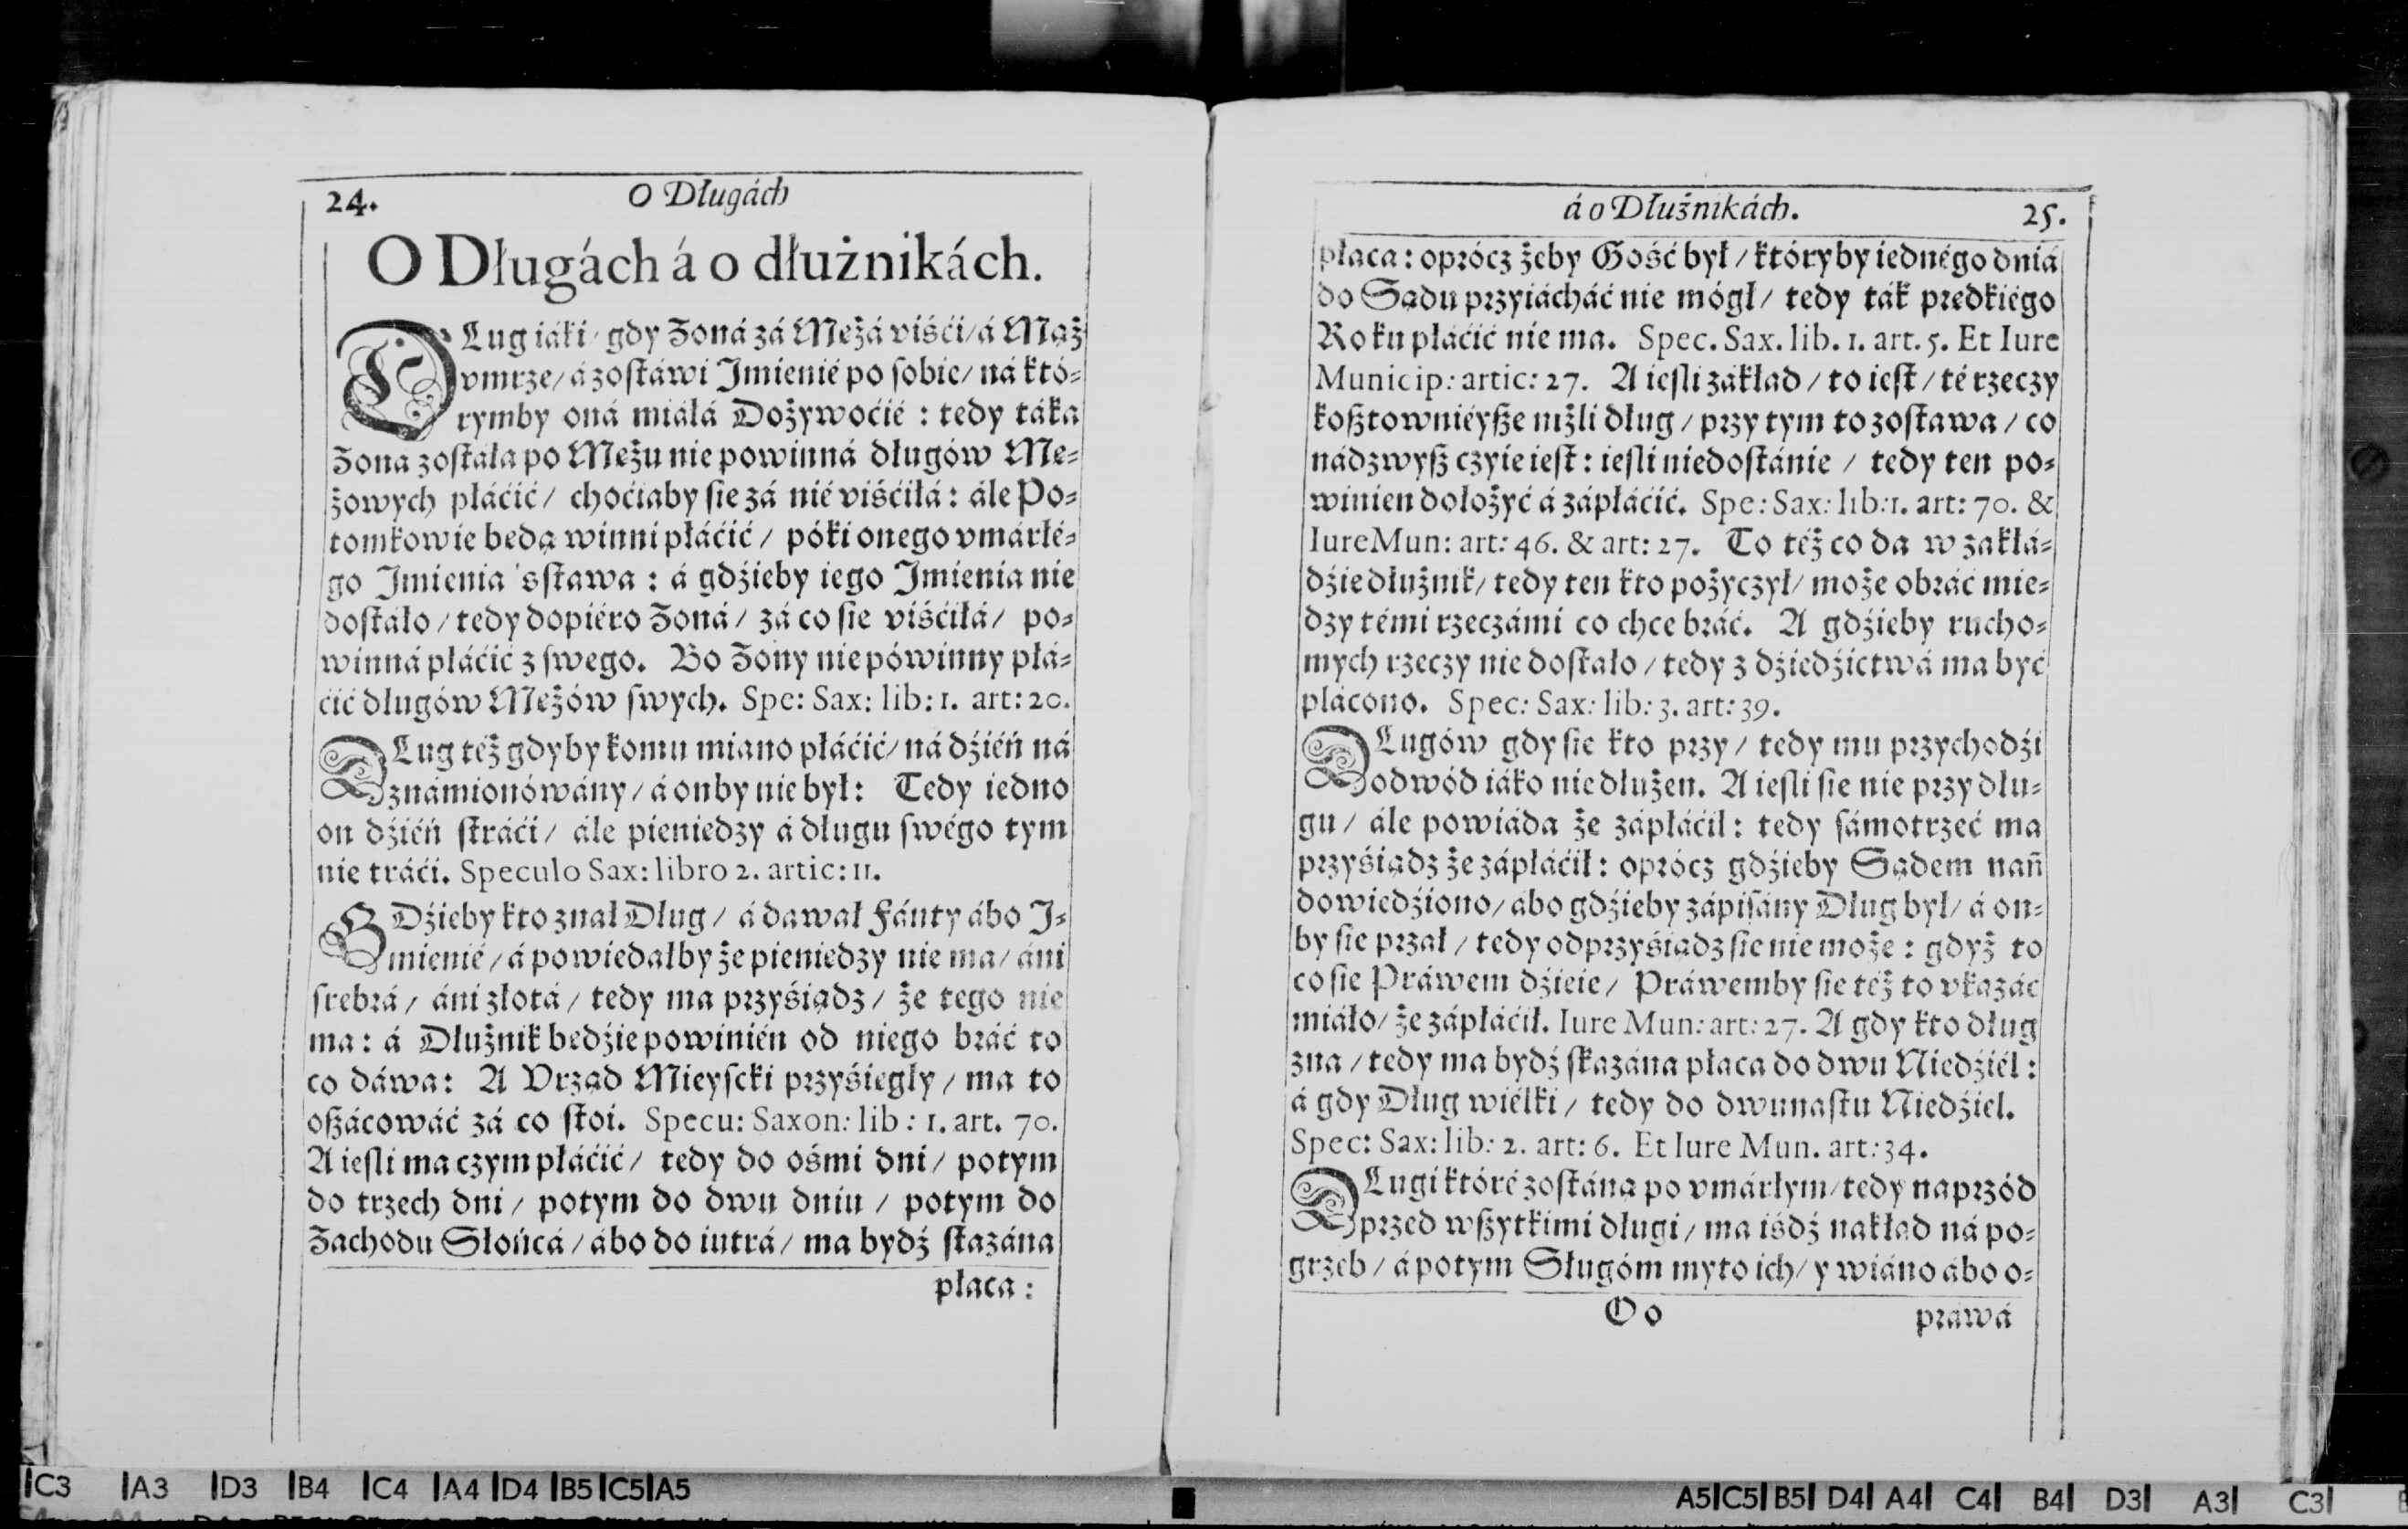 24. O Długách
O Długách á o dłużnikách.
DLug iáki/ gdy Zoná zá Mężá viśći/ á Mąż
vmrze/ á zostáwi Jmienié po sobie/ ná któ-
rymby oná miáłá Dożywoćié : tedy táka
Zona zostáła po Mężu nie powinná długów Mę-
żowych płáćić/ choćiaby sie zá nié viśćiłá: ále Po-
tomkowie będą winni płáćić/ póki onego vmárłé-
go Jmienia 'sstawa : á gdźieby iego Jmienia nie
dostało/ tedy dopiéro Zoná/ zá co sie viśćiłá/ po-
winná płáćić z swego. Bo Zony nie pówinny płá-
ćić długów Mężów swych. Spe: Sax: lib: 1. art: 20.
DLug téż gdyby komu miano płáćić/ ná dźiéń ná
známionówány/ á onby nie był: Tedy iedno
on dźiéń stráći/ ále pieniędzy á długu swégo tym
nie tráći. Speculo Sax: libro 2. artic: 11.
GDźieby kto znał Dług/ á dawał Fánty ábo J-
mienié/ á powiedałby że pieniędzy nie ma/ áni
srebrá/ áni złotá/ tedy ma przyśiądz/ że tego nie
ma: á Dłużnik będźie powinién od niego bráć to
co dáwa: A Vrząd Mieyscki przyśięgły/ ma to
oszácowáć zá co stoi. Specu: Saxon: lib : 1. art. 70.
A iesli ma czym płáćić/ tedy do ośmi dni/ potym
do trzech dni/ potym do dwu dniu/ potym do
Zachodu Słońcá/ ábo do iutrá/ ma bydź skazána
płaca :
á o Dłużnikách. 25.
płaca : oprócz żeby Gość był/ któryby iednégo dniá
do Sądu przyiácháć nie mógł/ tedy ták prędkiégo
Roku płáćić nie ma. Spec. Sax. lib. 1. art. 5. Et Iure
Municip: artic: 27. A iesli zakład/ to iest/ té rzeczy
kosztowniéysze niżli dług/ przy tym to zostawa/ co
nádzwysz czyie iest: iesli niedostánie/ tedy ten po-
winien dołożyć á zápłáćić. Spe: Sax: lib: 1. art: 70. &
Iure Mun: art: 46. & art: 27. To téż co da w zakłá-
dźie dłużnik/ tedy ten kto pożyczył/ może obráć mie-
dzy témi rzeczámi co chce bráć. A gdźieby rucho-
mych rzeczy nie dostało/ tedy z dźiedźictwá ma być
płácono. Spec: Sax: lib: 3. art: 39.
DLugów gdy sie kto przy/ tedy mu przychodźi
odwód iáko nie dłużen. A iesli sie nie przy dłu-
gu/ ále powiáda że zápłáćił: tedy sámotrzeć ma
przyśiądz że zápłáćił: oprócz gdźieby Sądem nań
dowiedźiono/ ábo gdźieby zápisány Dług był/ á on-
by sie przał/ tedy odprzyśiądz sie nie może : gdyż to
co sie Práwem dźieie/ Práwemby sie téż to vkazáć
miáło/ że zápłáćił. Iure Mun: art: 27. A gdy kto dług
zna/ tedy ma bydź skazána płaca do dwu Niedźiél :
á gdy Dług wiélki/ tedy do dwunastu Niedźiel.
Spec: Sax: lib: 2. art: 6. Et Iure Mun. art: 34.
DLugi któré zostáną po vmárłym/ tedy naprzód
przed wszytkimi długi/ ma iśdź nakład ná po-
grzeb/ á potym Sługóm myto ich/ y wiáno ábo o-
O o práwá
C3 A3 D3 B4 C4 A4 D4 B5 C5 A5
A5 C5 B5 D4 A4 C4 B4 D3 A3 C3